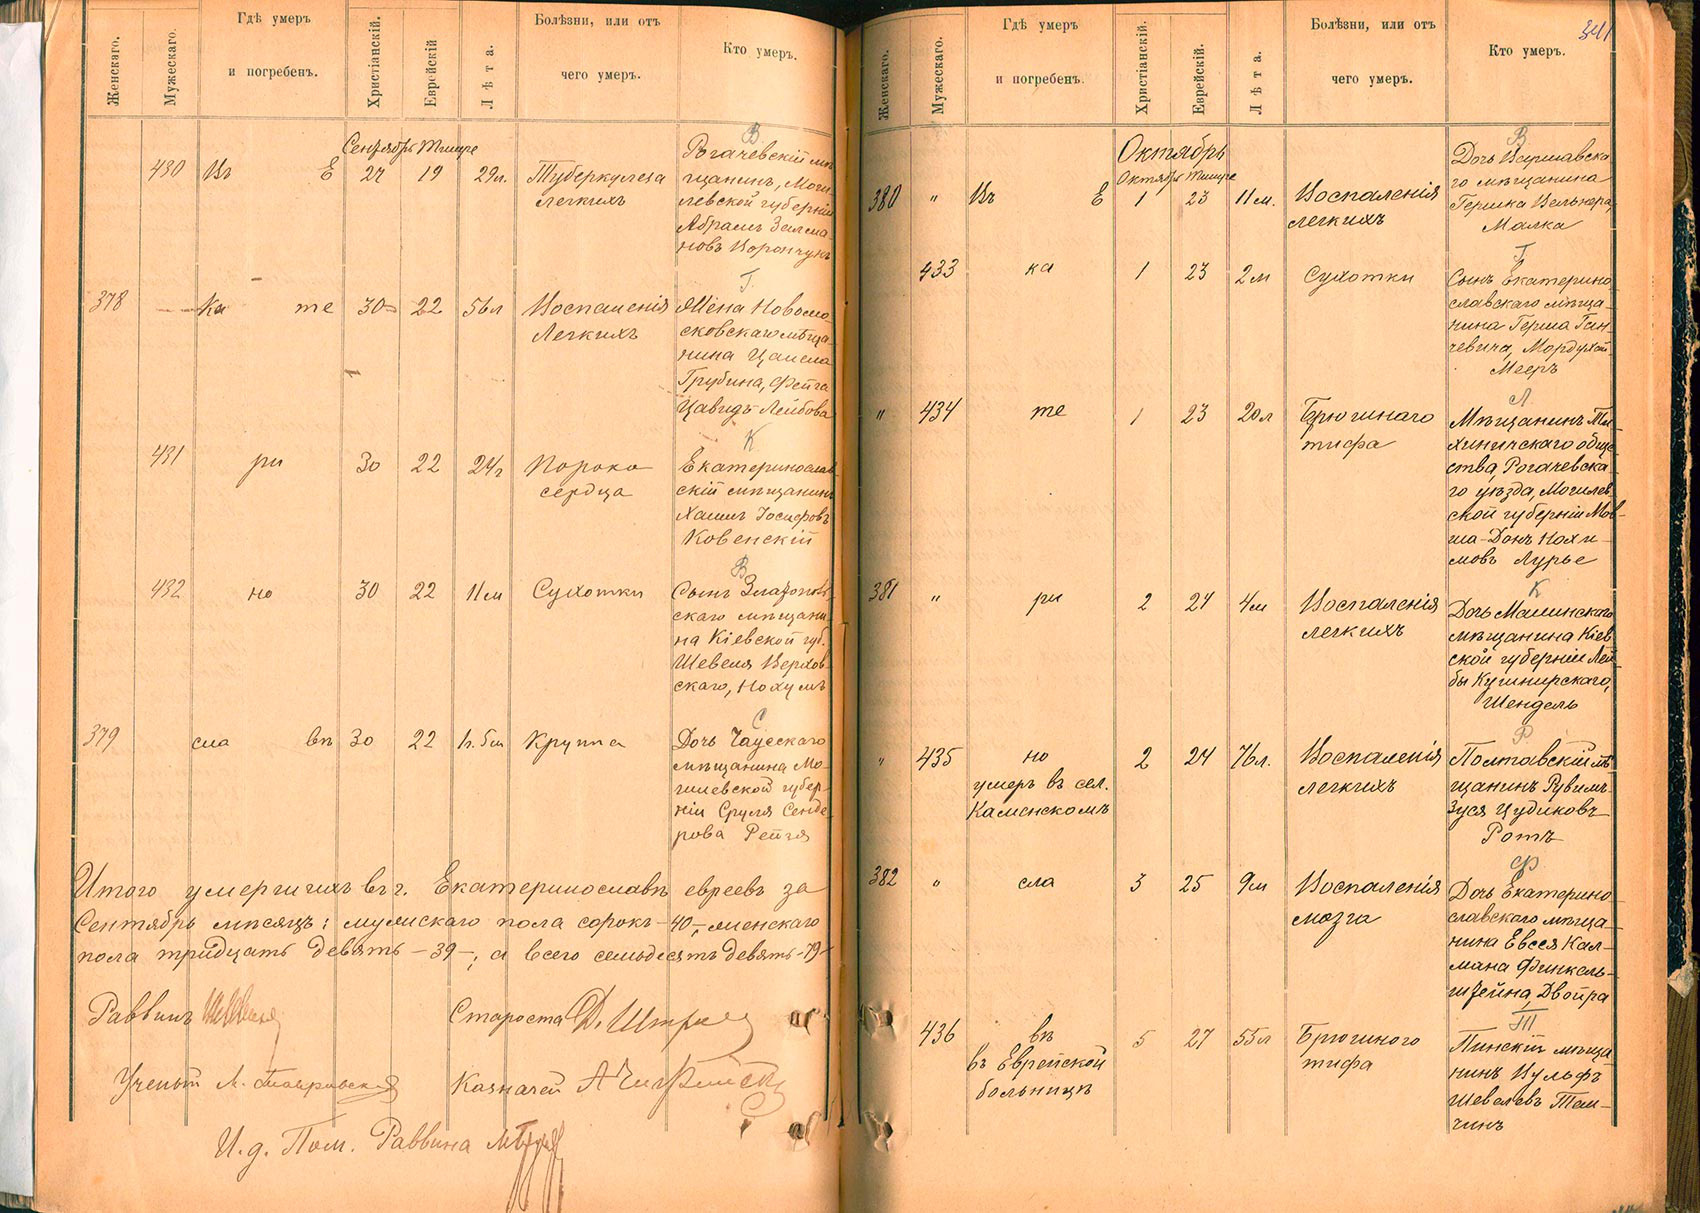 Женскаго.
Мужескаго.
Гдѣ умеръ
и погребенъ.
Христіанскій.
Еврейскій
Лѣта.
Болѣзни, или отъ
чего умеръ.
Кто умеръ.
Сентябрь Тишре
430 Въ Е 27 19 29л.
Туберкулеза
легкихъ
В
Рогачевскій мѣ
щанинъ, Моги
левской губерніи
Абрамъ Залма
новъ Ворончукъ
378 Ка те 30 22 56л
Воспаленія
Легкихъ
Г.
Жена Новомо
сковскаго мѣща
нина
Грубина, Фейга
Лейбова
431 ри 30 22 24г
Порока
сердца
К
Екатеринослав
скій мѣщанинъ
Хаимъ Іосифовъ
Ковенскій
432 но 30 22 11м
Сухотки
В
Сынъ
скаго мѣщани
на Кіевской губ.
Шевеля Верхов
скаго, Нохумъ
379 сла вѣ 30 22
Круппа
С
Дочь Чаусскаго
мѣщанина Мо
гилевской губер
ніи Сруля Сенде
рова Рейзя
Итого умершихъ въ г. Екатеринославѣ евреевъ за
Сентябрь мѣсяцъ: мужскаго пола сорокъ -40-, женскаго
пола тридцать девять -39-, а всего семьдесятъ девять -79-
Раввинъ
Староста Д.
Ученый
Казначей
И. д. Пом. Раввина
341
Женскаго.
Мужескаго.
Гдѣ умеръ
и погребенъ.
Христіанскій.
Еврейскій.
Лѣта.
Болѣзни, или отъ
чего умеръ.
Кто умеръ.
Октябрь
Октябрь Тишре
380 " Въ Е 1 23 11м.
Воспаленія
легкихъ
В
Дочь Варшавска
го мѣщанина
Гершка Вельнера,
Малка
433 ка 1 23 2м
Сухотки
Г
Сынъ Екатерино
славскаго мѣща
нина Герша Ган
чевича, Мордухай
Мееръ
" 434 те 1 23 20л
Брюшнаго
тифа
Л
Мѣщанинъ Ти
хиничскаго обще
ства, Рогачевска
го уѣзда, Могилев
ской губерніи Мов
ша-Донъ Нохи
мовъ Лурье
381 " ри 2 24 4м
Воспаленія
легкихъ
К
Дочь Малинскаго
мѣщанина Кіев
ской губерніи Лей
бы Кушнирскаго,
Шендель
" 435 но 2 24 76л.
умеръ въ сел.
Каменскомъ
Воспаленія
легкихъ
Р
Полтавскій мѣ
щанинъ Рувимъ-
Зуся Цудиковъ
Ротъ
382 " сла 3 25 9м
Воспаленія
мозга
Ф
Дочь Екатерино
славскаго мѣща
нина Евсея Кал
мана Финкель
штейна, Двойра
436 вѣ 5 27 55л
въ Еврейской
больницѣ
Брюшного
тифа
Пинскій мѣща
нинъ Вульфъ
Шевелевъ Том
чинъ